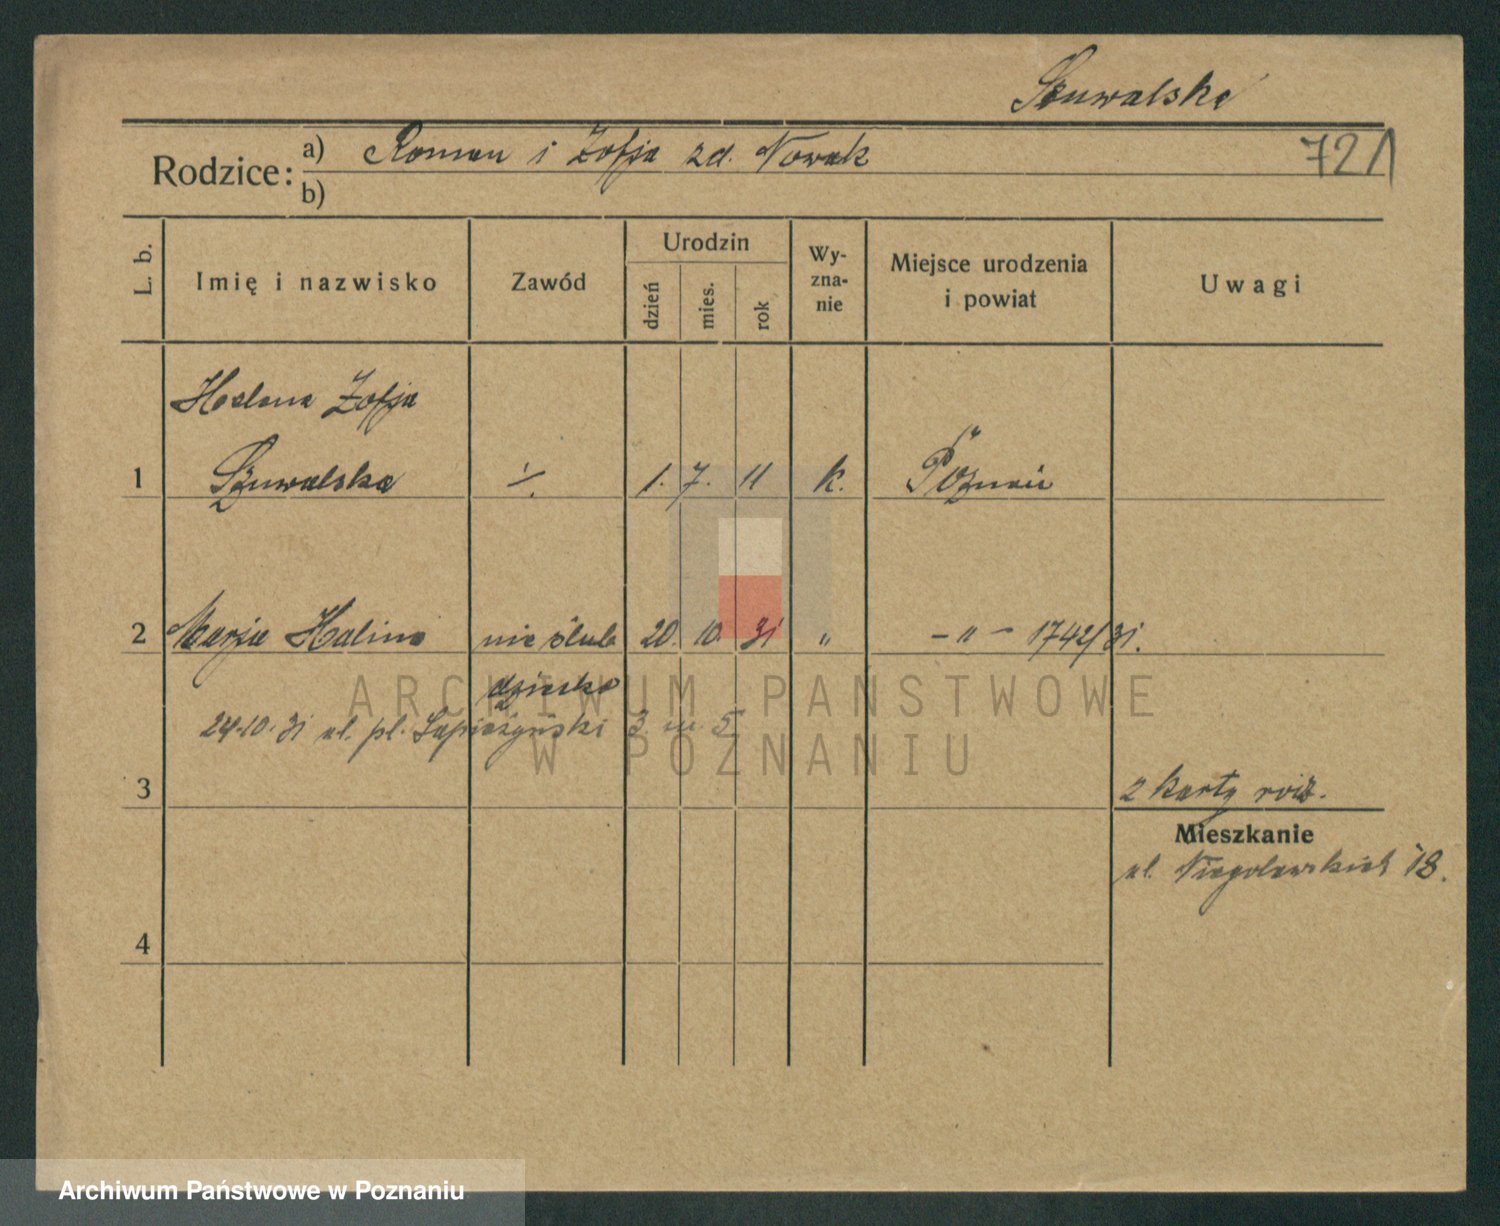 Szuwalska
Rodzice: a) Roman i Zofja zd. Nowak
721
b)
L. b. Imię i nazwisko Zawód Urodzin dzień mies. rok Wyznanie Miejsce urodzenia i powiat Uwagi
Helena Zofja
1 Szuwalska ·/. 1. 7. 11 k. Poznań
2 Marja Halina nieślub 20. 10. 31 " – " – 1742/31.
dziecko
24.10.31 ul. pl. Sapieżyński 3 m. 5
ARCHIWUM PAŃSTWOWE
W POZNANIU
3 2 karty
Mieszkanie
ul. Niegolewskich 18.
4
Archiwum Państwowe w Poznaniu